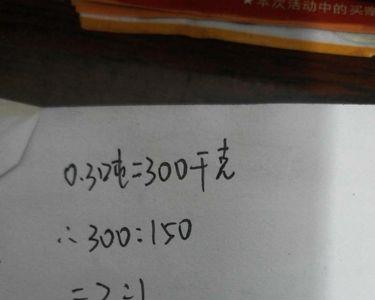 ★本次活动中的买赠
0.3吨=300千克
∴300:150
=2:1